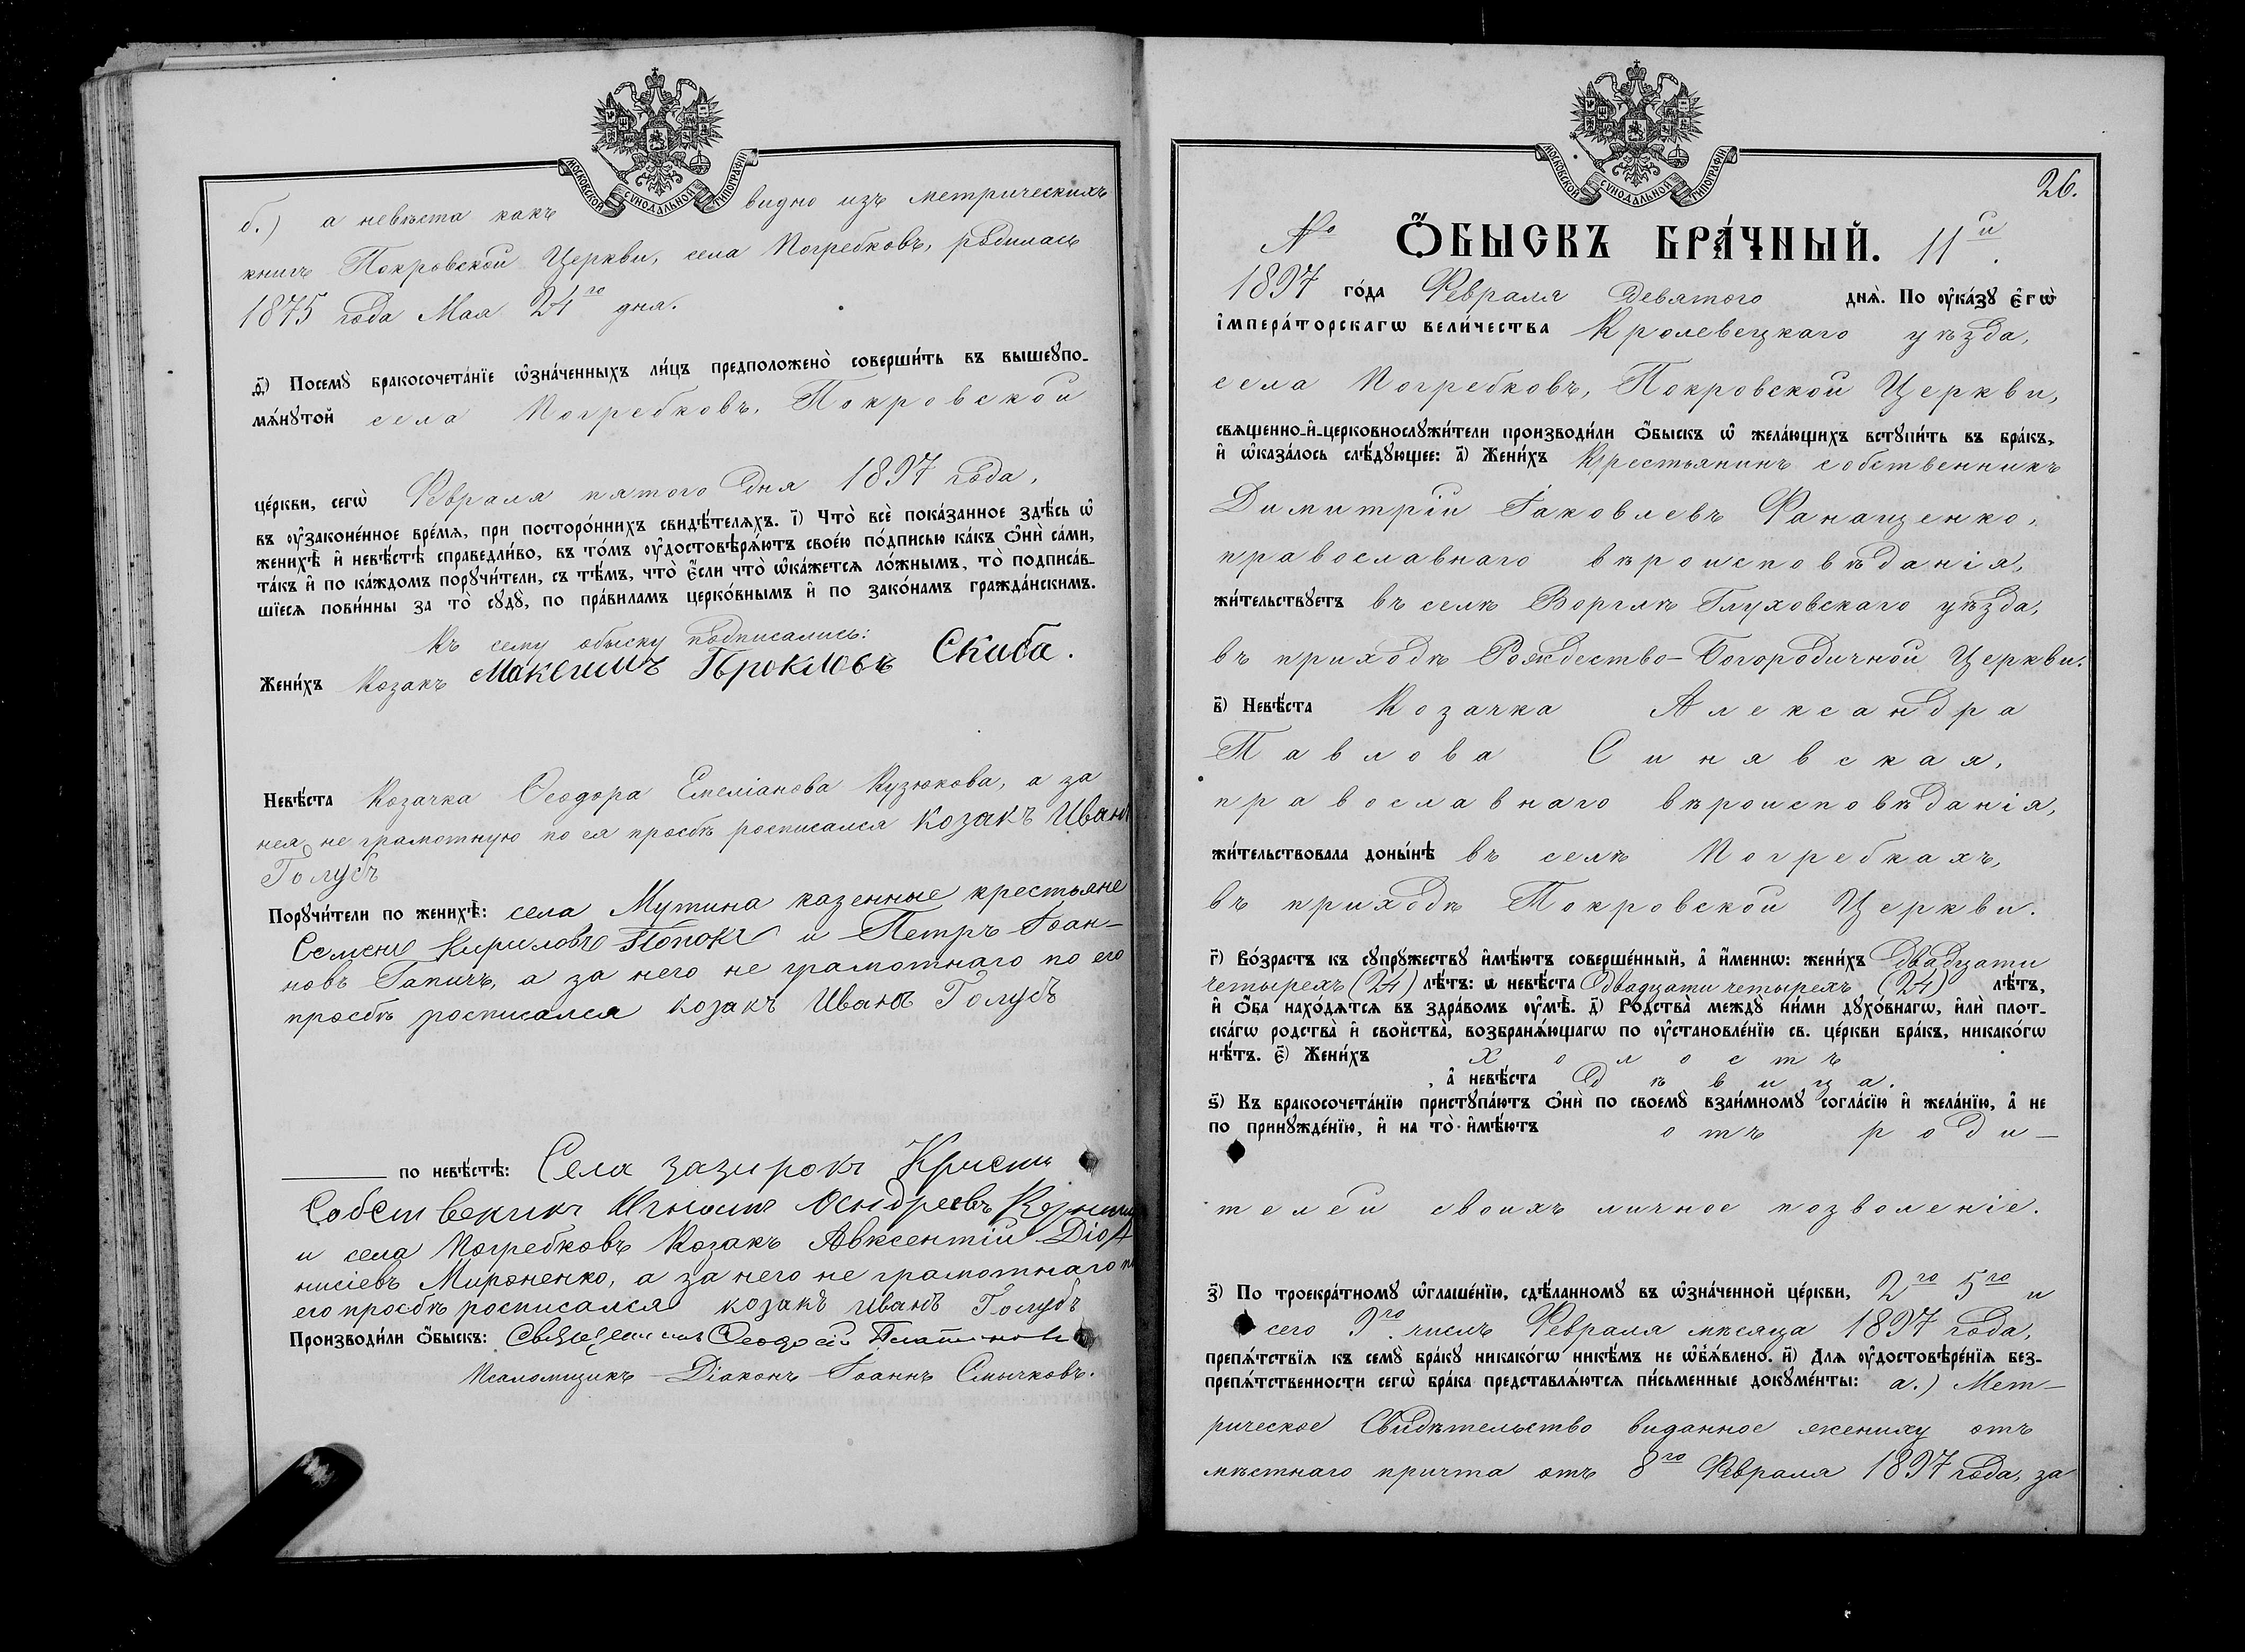 МОСКОВСКОЙ СѴНОДАЛЬНОЙ ТИПОГРАФІИ
б.) а невѣста какъ видно изъ метрическихъ
книгъ Покровской Церкви, села Погребковъ, родилась
1875 года Мая 24го дня.
д҃і) Посемꙋ̀ бракосочета́нїе ѡ҆зна́ченныхъ ли́цъ предположено̀ соверши́ть въ вышеꙋпо-
мѧ́нꙋтой села Погребковъ, Покровской
це́ркви, сегѡ̀ Февраля пятого дня 1897 года,
въ ᲂу҆законе́нное вре́мя, при посторо́ннихъ свидѣ́телѧхъ. і҃) Что̀ всѐ пока́занное здѣ́сь ѡ҆
женихѣ̀ и҆ невѣ́стѣ справедли́во, въ то́мъ ᲂу҆достовѣрѧ́ютъ свое́ю по́дписью ка́къ ѻ҆нѝ са́ми,
та́къ и҆ по ка́ждомъ порꙋчи́тели, съ тѣ́мъ, что̀ є҆́сли что̀ ѡ҆ка́жетсѧ ло́жнымъ, то̀ подписа́в-
шїесѧ пови́нны за то̀ сꙋдꙋ̀, по пра́виламъ церко́внымъ и҆ по зако́намъ гражда́нскимъ.
Къ сему обыску подписались:
Жени́хъ Козакъ Максимъ Прокловъ Скиба.
Невѣ́ста Козачка Ѳеодора Емеліанова Кузюкова, а за
нея, не грамотную по ея просьбѣ росписался козакъ Иванъ
Голубъ
Порꙋчи́тели по женихѣ̀: села Мутина казенные крестьяне
Семенъ Кириловъ Попокъ и Петръ Іоан-
новъ Гапичъ, а за него не грамотнаго по его
просьбѣ росписался козакъ Иванъ Голубъ
по невѣ́стѣ: Села зазирокъ Крестъ
Собственикъ Игнатъ Андреевъ
и села Погребковъ Козакъ Авксентій Діо
нисіевъ Мироненко, а за него не грамотнаго по
его просьбѣ росписался козакъ Иванъ Голубъ
Производи́ли ѻ҆́быскъ: Священникъ Ѳеодосій Платоновъ
Псаломщикъ - Діаконъ Іоаннъ Смычковъ.
МОСКОВСКОЙ СѴНОДАЛЬНОЙ ТИПОГРАФІИ
26.
№ Ѻ҆́БЫСКЪ БРА́ЧНЫЙ. 11й.
1897 го́да Февраля девятого днѧ̀. По ᲂу҆ка́зꙋ є҆гѡ̀
і҆мпера́торскагѡ вели́чества Кролевецкаго уѣзда,
села Погребковъ, Покровской Церкви,
свѧщенно-и҆-церковнослꙋжи́тели производи́ли ѻ҆́быскъ ѡ҆ жела́ющихъ встꙋпи́ть въ бра́къ,
и҆ ѡ҆каза́лось слѣ́дꙋющее: а҃) Жени́хъ Крестьянинъ собственникъ
Димитрій Іаковлевъ Фанащенко,
православнаго вѣроисповѣданія,
жи́тельствꙋетъ въ селѣ Воргле Глуховскаго уѣзда,
въ приходѣ Рождество-Богородичной Церкви.
в҃) Невѣ́ста Козачка Александра
Павлова Синявская,
православнаго вѣроисповѣданія,
жи́тельствовала донынѣ въ селѣ Погребкахъ,
въ приходѣ Покровской Церкви.
г҃) Во́зрастъ къ сꙋпрꙋ́жествꙋ и҆мѣ́ютъ соверше́нный, а҆ и҆́меннѡ: жени́хъ двадцати
четырехъ (24) лѣ́тъ: а невѣ́ста двадцати четырехъ (24) лѣ́тъ,
и҆ ѻ҆́ба нахо́дѧтсѧ въ здра́вомъ ᲂу҆мѣ̀. д҃) Родства̀ междꙋ̀ ни́ми дꙋхо́внагѡ, и҆лѝ плот-
ска́гѡ родства̀ и҆ свойства̀, возбранѧ́ющагѡ по ᲂу҆становле́нїю св. це́ркви бра́къ, никако́гѡ
нѣ́тъ. є҃) Жени́хъ холостъ
, а҆ невѣ́ста дѣвица.
ѕ҃) Къ бракосочета́нїю пристꙋпа́ютъ ѻ҆нѝ по своемꙋ̀ взаи́мномꙋ согла́сїю и҆ жела́нїю, а҆ не
по принꙋжде́нїю, и҆ на то̀ и҆мѣ́ютъ отъ роди-
телей своихъ личное позволеніе.
з҃) По троекра́тномꙋ ѡ҆глаше́нїю, сдѣ́ланномꙋ въ ѡ҆зна́ченной це́ркви, 2го 5го и
сего 9го числъ Февраля мѣсяца 1897 года,
препѧ́тствїѧ къ семꙋ̀ бра́кꙋ никако́гѡ никѣ́мъ не ѡ҆бъѧ́влено. и҃) Для ᲂу҆достовѣре́нїѧ без-
препѧ́тственности сегѡ̀ бра́ка представлѧ́ютсѧ пи́сьменные докꙋме́нты: а.) Мет-
рическое Свидѣтельство виданное жениху отъ
мѣстнаго причта отъ 8го Февраля 1897 года, за